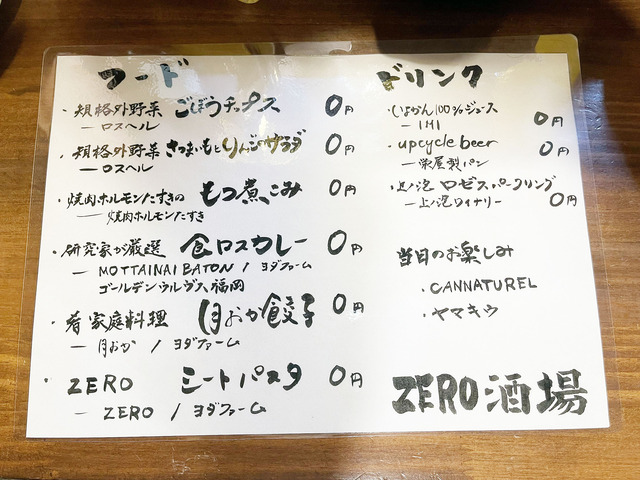 フード
・規格外野菜 ごぼうチップス 0円
― ロスヘル
・規格外野菜 さつまいもとりんごのサラダ 0円
― ロスヘル
・焼肉ホルモンたすきの もつ煮こみ 0円
― 焼肉ホルモンたすき
・研究家が厳選 食ロスカレー 0円
― MOTTAINAI BATON / ヨダファーム
ゴールデンウルヴス福岡
・肴 家庭料理 月おか餃子 0円
― 月おか / ヨダファーム
・ZERO ミートパスタ 0円
― ZERO / ヨダファーム
ドリンク
・じゃかん100%ジュース
― IHI 0円
・upcycle beer
― 栄屋製パン 0円
・上ノ泡 ロゼスパークリング
― 上ノ泡ワイナリー 0円
当日のお楽しみ
・CANNATUREL
・ヤマキウ
ZERO酒場